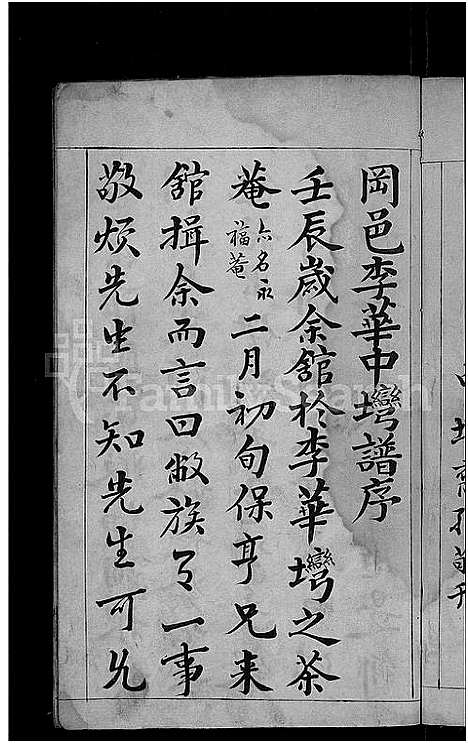 岡邑李華中塆譜序
壬辰歲余舘於李華塆之茶
菴亦名永福菴二月初旬保亨兄来
舘揖余而言曰敝族有一事
敬煩先生不知先生可允
FamilySearch